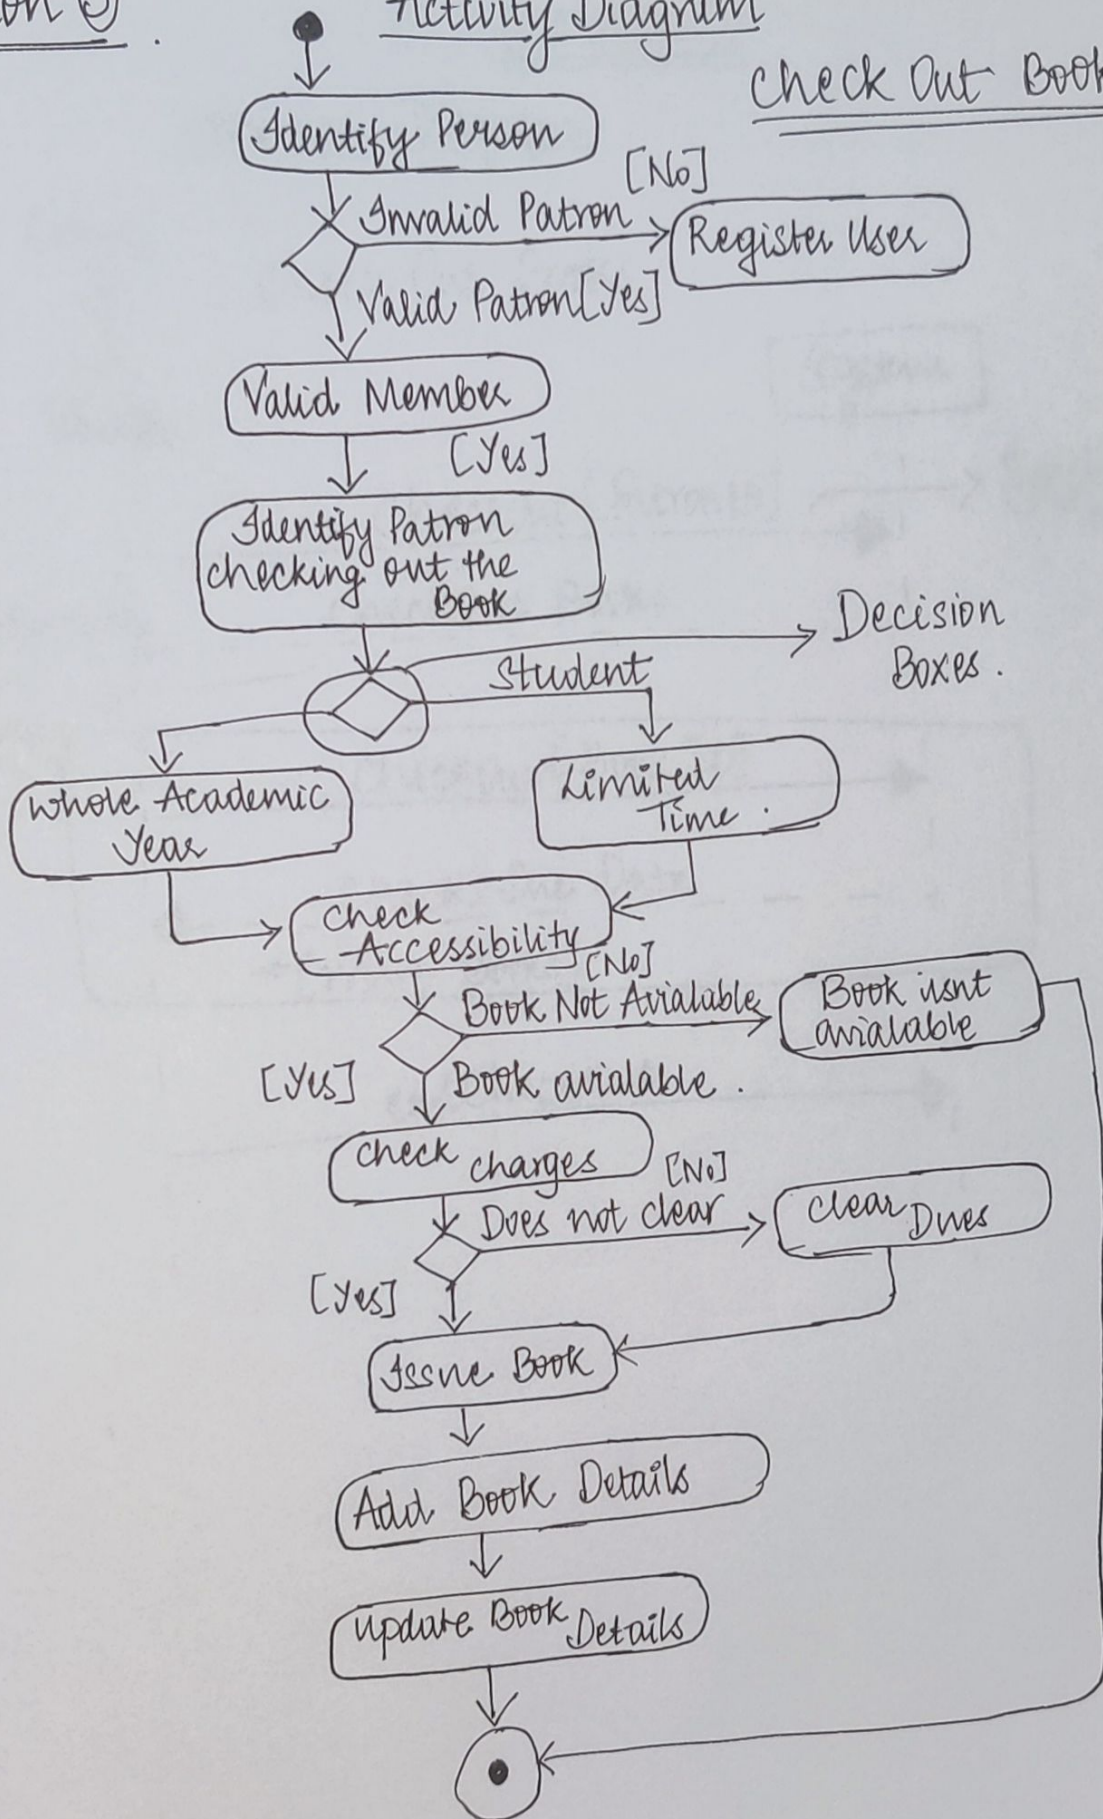 Activity Diagram
Check Out Book
Identify Person
[No]
Invalid Patron
Register User
Valid Patron [Yes]
Valid Member
[Yes]
Identify Patron
checking out the
Book
Decision
Boxes.
Student
Whole Academic
Year
Limited
Time.
Check
Accessibility
[No]
Book Not Avialable
Book isnt
avialable
[Yes]
Book avialable.
Check charges
[No]
Does not clear
Clear Dues
[Yes]
Issue Book
Add Book Details
Update Book Details